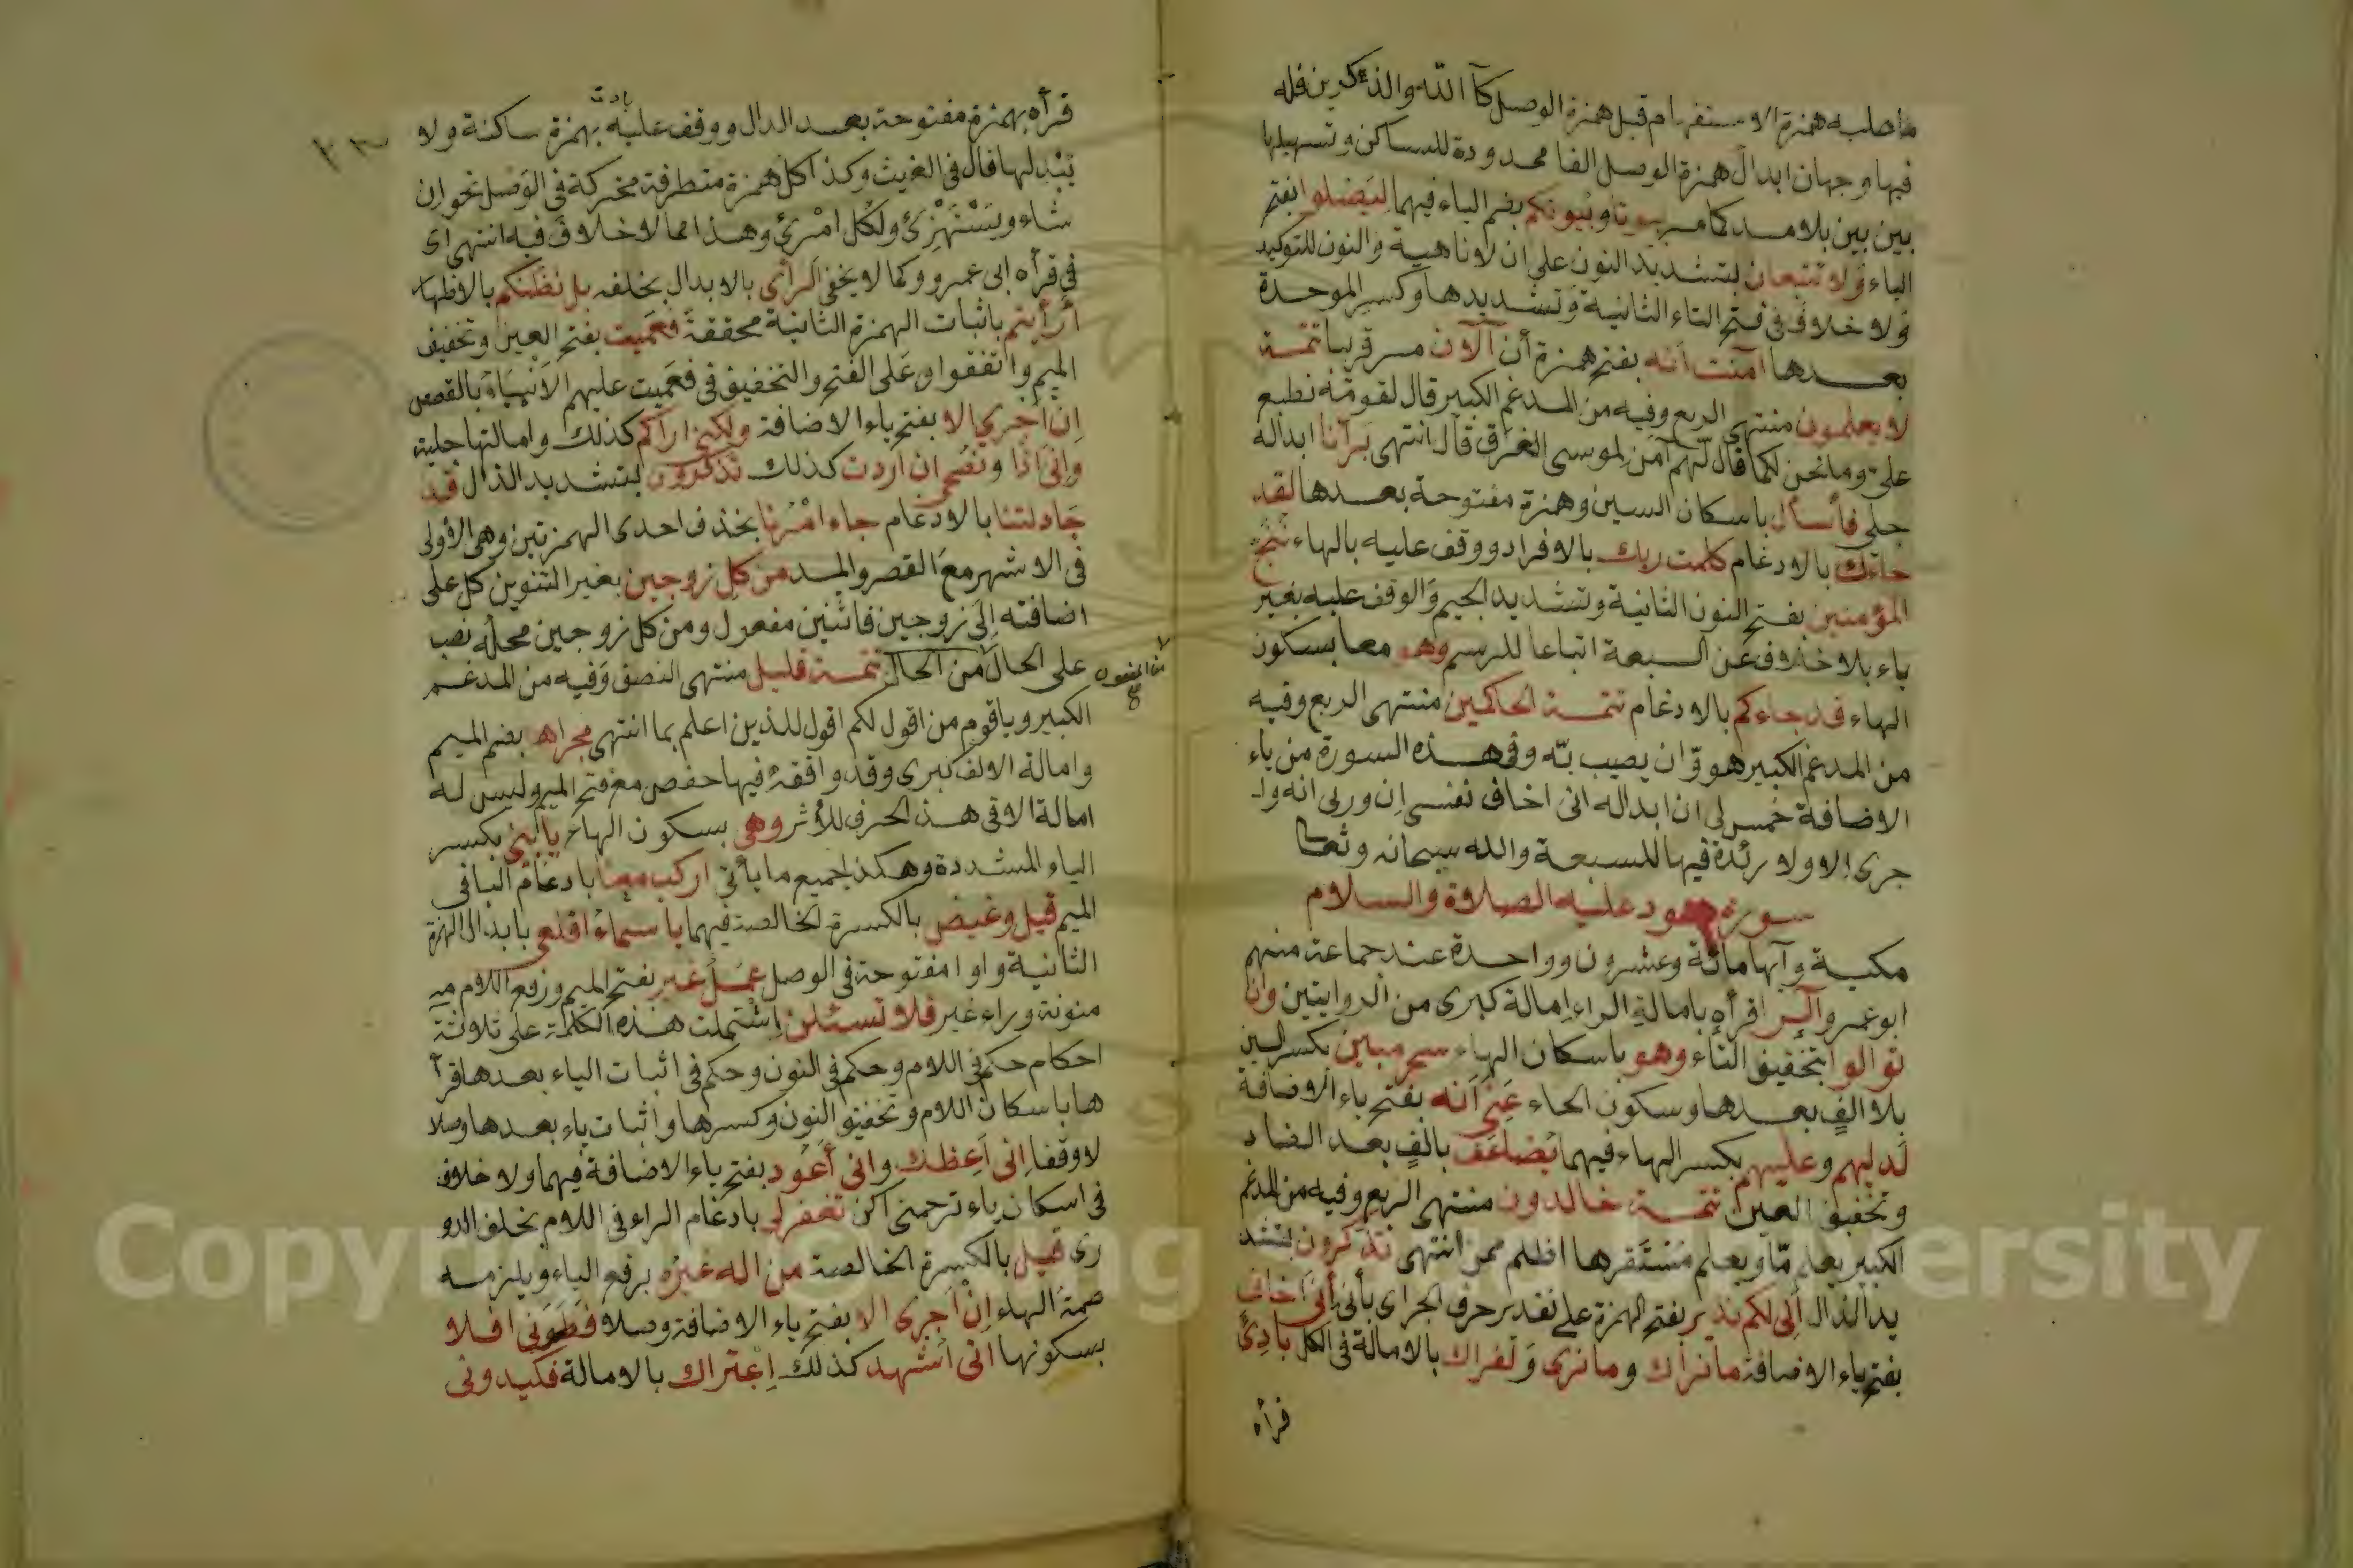 ما صلبه همزة الاستفهام قبل همزة الوصل كآ الله والذكرين فله
فيها وجهان ابدال همزة الوصل الفا ممدودة للساكن وتسهيلها
بين بين بلا مد كما مر بيوتا وبيوتكم بضم الباء فيهما ليضلوا بفتح
الياء ولا تتبعان بتشديد النون على ان لا ناهية والنون للتوكيد
ولا خلاف في فتح التاء الثانية وتشديدها وكسر الموحدة
بعدها آمنت انه بفتح همزة أن آلآن مر قريبا تتمة
لا يعلمون منتهى الربع وفيه من المدغم الكبير قال لقومه نطبع
على وما نحن لكما قال لهم آمن لموسى الغرق قال انتهى برآنا ابداله
جلي فاسأل باسكان السين وهمزة مفتوحة بعدها لقد
جاءك بالادغام كلمت ربك بالافراد ووقف عليه بالهاء ننج
المؤمنين بفتح النون الثانية وتشديد الجيم والوقف عليه بغير
ياء بلا خلاف عن السبعة اتباعا للرسم وهو معا بسكون
الهاء قد جاءكم بالادغام تتمة الحاكمين منتهى الربع وفيه
من المدغم الكبير هو وان يصيب به وفي هذه السورة من ياء
الاضافة خمس لي ان ابداله اني اخاف نفسي ان وربي انه وا
جري الا ولا زئدة فيها للسبعة والله سبحانه وتعا
سورة هود عليه الصلاة والسلام
مكية وآيها مائة وعشرون وواحدة عند جماعة منهم
ابو عمرو آلر اقرأه بامالة الراء امالة كبرى من الروايتين وان
تولوا بتخفيف التاء وهو باسكان الهاء سحر مبين بكسر السين
بلا الف بعدها وسكون الحاء عني انه بفتح ياء الاضافة
لديهم وعليهم بكسر الهاء فيهما يضاعف بالف بعد الضاد
وتخفيف العين تتمة خالدون منتهى الربع وفيه من المدغم
الكبير يعلم ما ويعلم مستقرها اظلم ممن انتهى تذكرون بتشد
يد الذال اني لكم نذير بفتح الهمزة على تقدير حرف الجر اى بأني اني اخاف
بفتح ياء الاضافة ما نراك وما نرى ولنراك بالامالة في الكل بادئ
قرأه
قرأه بهمزة مفتوحة بعد الدال ووقف عليه بهمزة ساكنة ولا
بادئ
يبدلها قال في الغيث وكذا كل همزة متطرفة متحركة في الوصل نحو ان
شاء ويستهزئ ولكل امرئ وهذا مما لا خلاف فيه انتهى اى
في قرأه ابي عمرو وكما لا يخفى الرأى بالابدال بخلفه بل نظنكم بالاظهار
أرأيتم باثبات الهمزة الثانية محققة فعميت بفتح العين وتخفيف
الميم واتفقوا على الفتح والتخفيف في فعميت عليهم الانبياء بالقصص
إن اجري الا بفتح ياء الاضافة ولكني اراكم كذلك وامالتها جلية
واني اذا ونصحي ان اردت كذلك تذكرون بتشديد الذال قد
جادلتنا بالادغام جاء امرنا بحذف احدى الهمزتين وهي الاولى
في الاشهر مع القصر والمد من كل زوجين بغير التنوين كل على
اضافته الى زوجين فاثنين مفعول ومن كل زوجين محله نصب
على الحال من الحال تتمة قليل منتهى النصف وفيه من المدغم
من المفعول صح
الكبير ويا قوم من اقول لكم اقول للذين اعلم بما انتهى مجراها بضم الميم
وامالة الالف كبرى وقد وافقه فيها حفص مع فتح الميم وليس له
امالة الا في هذ الحرف للأثر وهي بسكون الهاء يا بني بكسر
الياء المشددة وهكذ لجميع ما يأتي اركب معنا بادغام البا في
الميم قيل وغيض بالكسرة الخالصة فيهما يا سماء اقلعي بابدال الهمزة
الثانية واوا مفتوحة في الوصل عمل غير بفتح الميم ورفع اللام مـ
منونة وراء غير فلا تسئلن اشتملت هذه الكلمة على ثلاثة
احكام حكم في اللام وحكم في النون وحكم في اثبات الياء بعدها قرأ
ها باسكان اللام وتخفيف النون وكسرها واثبات ياء بعدها وصلا
لا وقفا اني اعظك واني أعود بفتح ياء الاضافة فيهما ولا خلاف
في اسكان ياء ترحمني اكن تغفر لي بادغام الراء في اللام بخلف الدو
رى قيل بالكسرة الخالصة من اله غيره برفع الياء ويلزمه
ضمة الهاء إن اجرى الا بفتح ياء الاضافة وصلا فطرني افلا
بسكونها اني اشهد كذلك اعتراك بالامالة فكيدوني
Copyright © King University